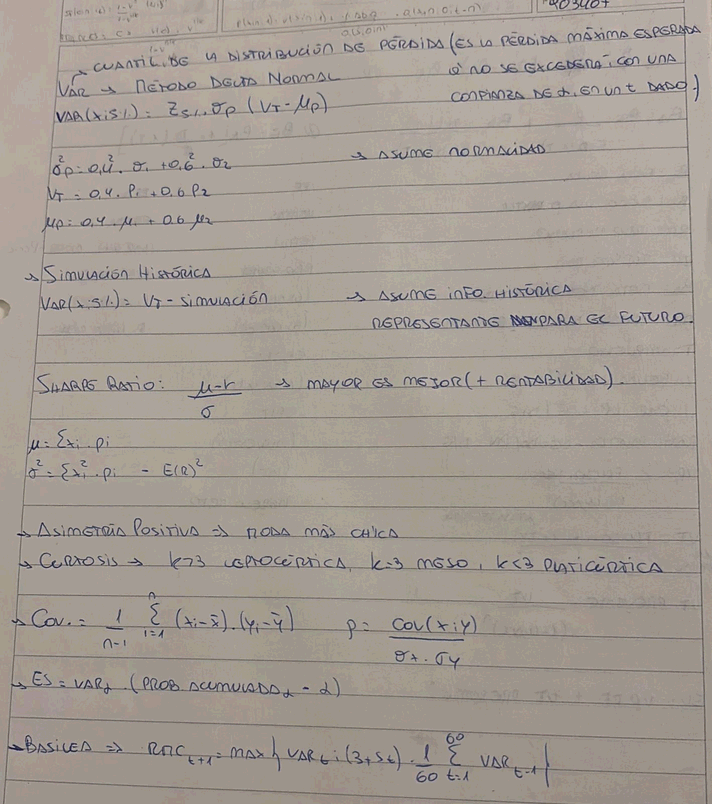 403407
→ CUANTIL DE LA DISTRIBUCIÓN DE PÉRDIDA (ES LA PÉRDIDA MÁXIMA ESPERADA
Q' NO SE EXCEDERÁ CON UNA
CONFIANZA DE α, EN UN t DADO.)
VAR → MÉTODO DELTA NORMAL
VAR(x;5%) = Z5%.σp (VT - μp)
σ²p = 0,4². σ1 + 0,6². σ2 → ASUME NORMALIDAD
VT = 0,4. P1 + 0,6 P2
μp = 0,4. μ1 + 0,6 μ2
→ SIMULACIÓN HISTÓRICA
VAR(x,5%) = VT - SIMULACIÓN → ASUME INFO. HISTÓRICA
REPRESENTANTE PARA EL FUTURO.
SHARPE RATIO: (μ-r)/σ → MAYOR ES MEJOR (+ RENTABILIDAD).
μ = Σxi . pi
σ² = Σxi² . pi - E(R)²
→ ASIMETRÍA POSITIVA => MODA MÁS CHICA
→ CURTOSIS → k>3 LEPTOCÚRTICA, k=3 MESO, k<3 PLATICÚRTICA
→ COV. = 1/(n-1) Σ(i=1, n) (xi-x̄).(yi-ȳ) ρ = COV(x;y)/(σx.σy)
→ ES = VARα . (PROB. ACUMULADAα - α)
→ BASILEA => RMC t+1 = MAX { VARt ; (3+St) . 1/60 Σ(t=1, 60) VAR t-1 }